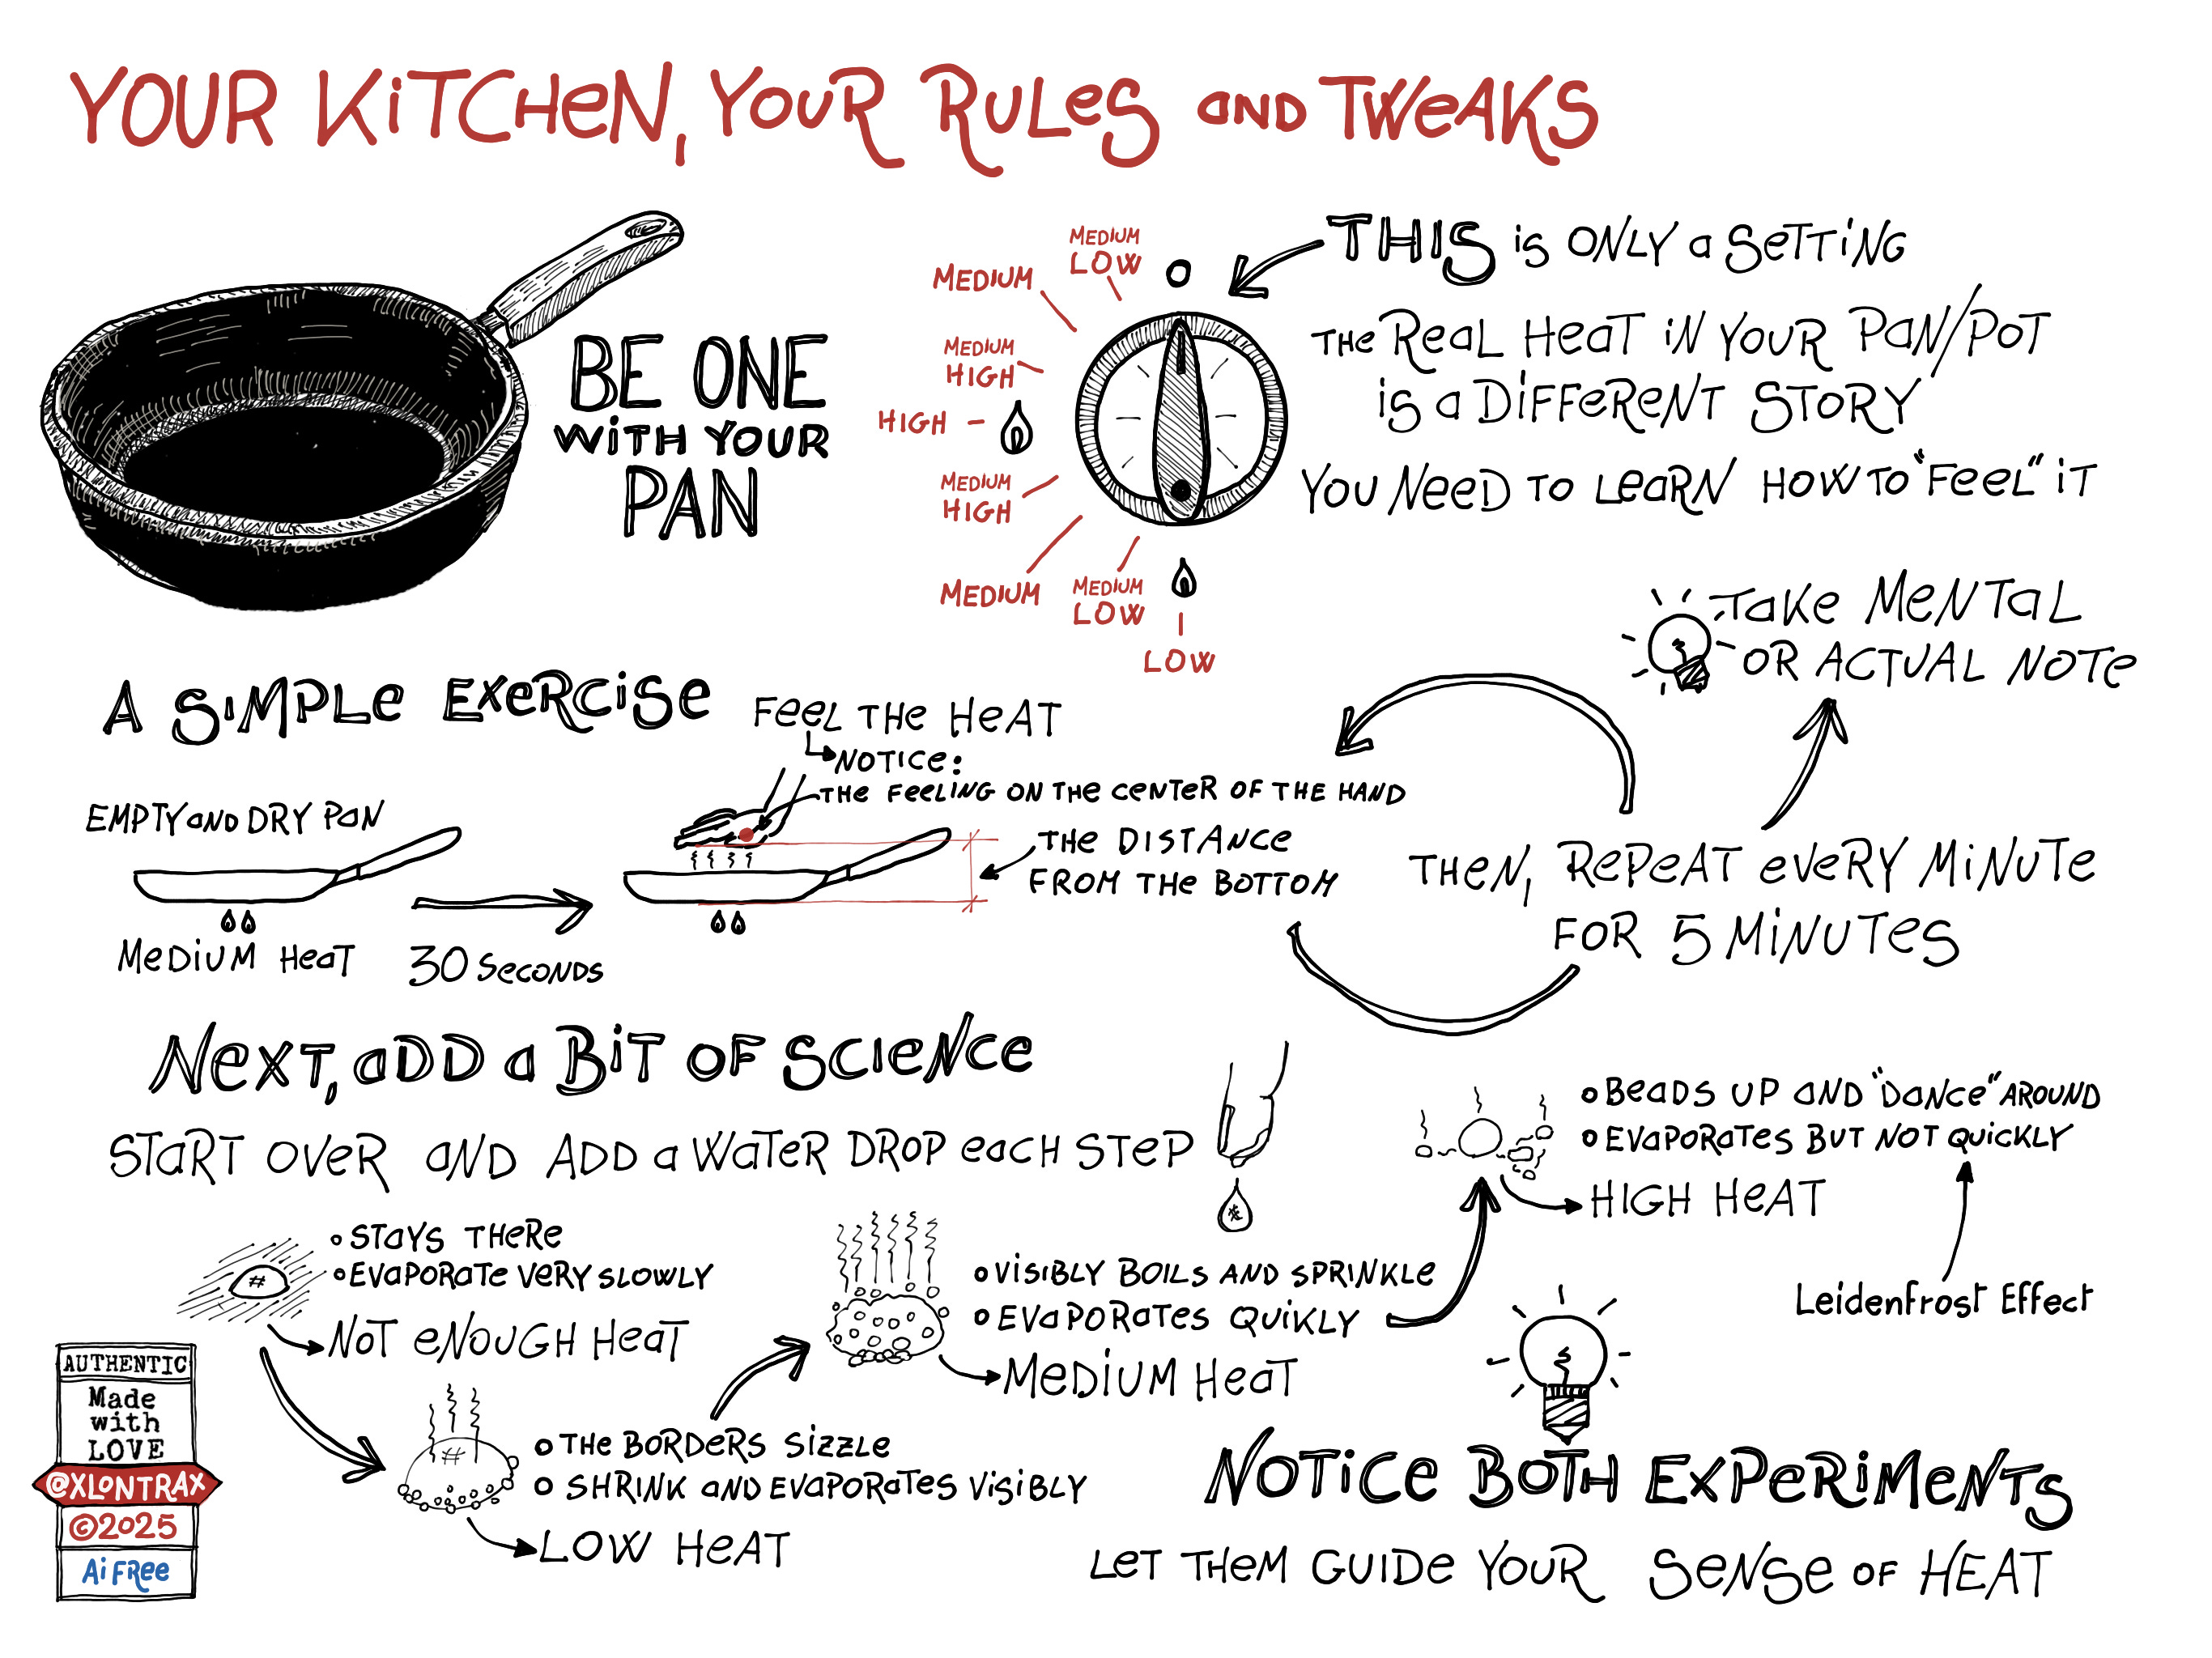 YOUR KiTCHeN, YOUR RULeS aND TWeAKS
BE ONE
WiTH YOUR
PAN
MEDIUM
LOW
MEDIUM
MEDIUM
HIGH
HIGH
MEDIUM
HIGH
MEDIUM
MEDIUM
LOW
LOW
THIS iS ONLY a SeTTiNG
THe ReaL HeaT iN YOUR PaN/POT
iS a DiFFeReNT STORY
YOU NeeD TO LeaRN HOW TO "FeeL" iT
Take MeNTaL
OR ACTUAL NOTe
A SiMPLe EXeRCiSe
FeeL THe HeAT
NOTiCe:
THe FeeLiNG ON THe CeNTeR OF THe HAND
THe DISTANCe
FROM THe BOTTOM
EMPTY aND DRY PaN
MeDiUM HeaT
30 SeCONDS
THeN, RePeAT eVeRY MiNUTe
FOR 5 MiNUTeS
NeXT, aDD a BiT OF SCieNCe
START OVeR aND ADD a WaTeR DROP eaCH STeP
STaYS THeRe
EVaPORaTe VeRY SLOWLY
NOT eNOUGH HeaT
THe BORDeRS SiZZLe
SHRiNK aND EVaPORaTeS ViSiBLY
LOW HeAT
ViSiBLY BOiLS AND SPRiNKLe
EVaPORaTeS QUiKLY
MeDiUM HeaT
BeaDS UP aND "DaNCe" AROUND
EVaPORaTeS BUT NOT QUiCKLY
HiGH HeAT
Leidenfrost Effect
NOTiCe BOTH EXPeRiMeNTS
LeT THeM GUiDe YOUR SeNSe OF HEAT
AUTHENTIC
Made
with
LOVE
@XLONTRAX
©2025
Ai FRee